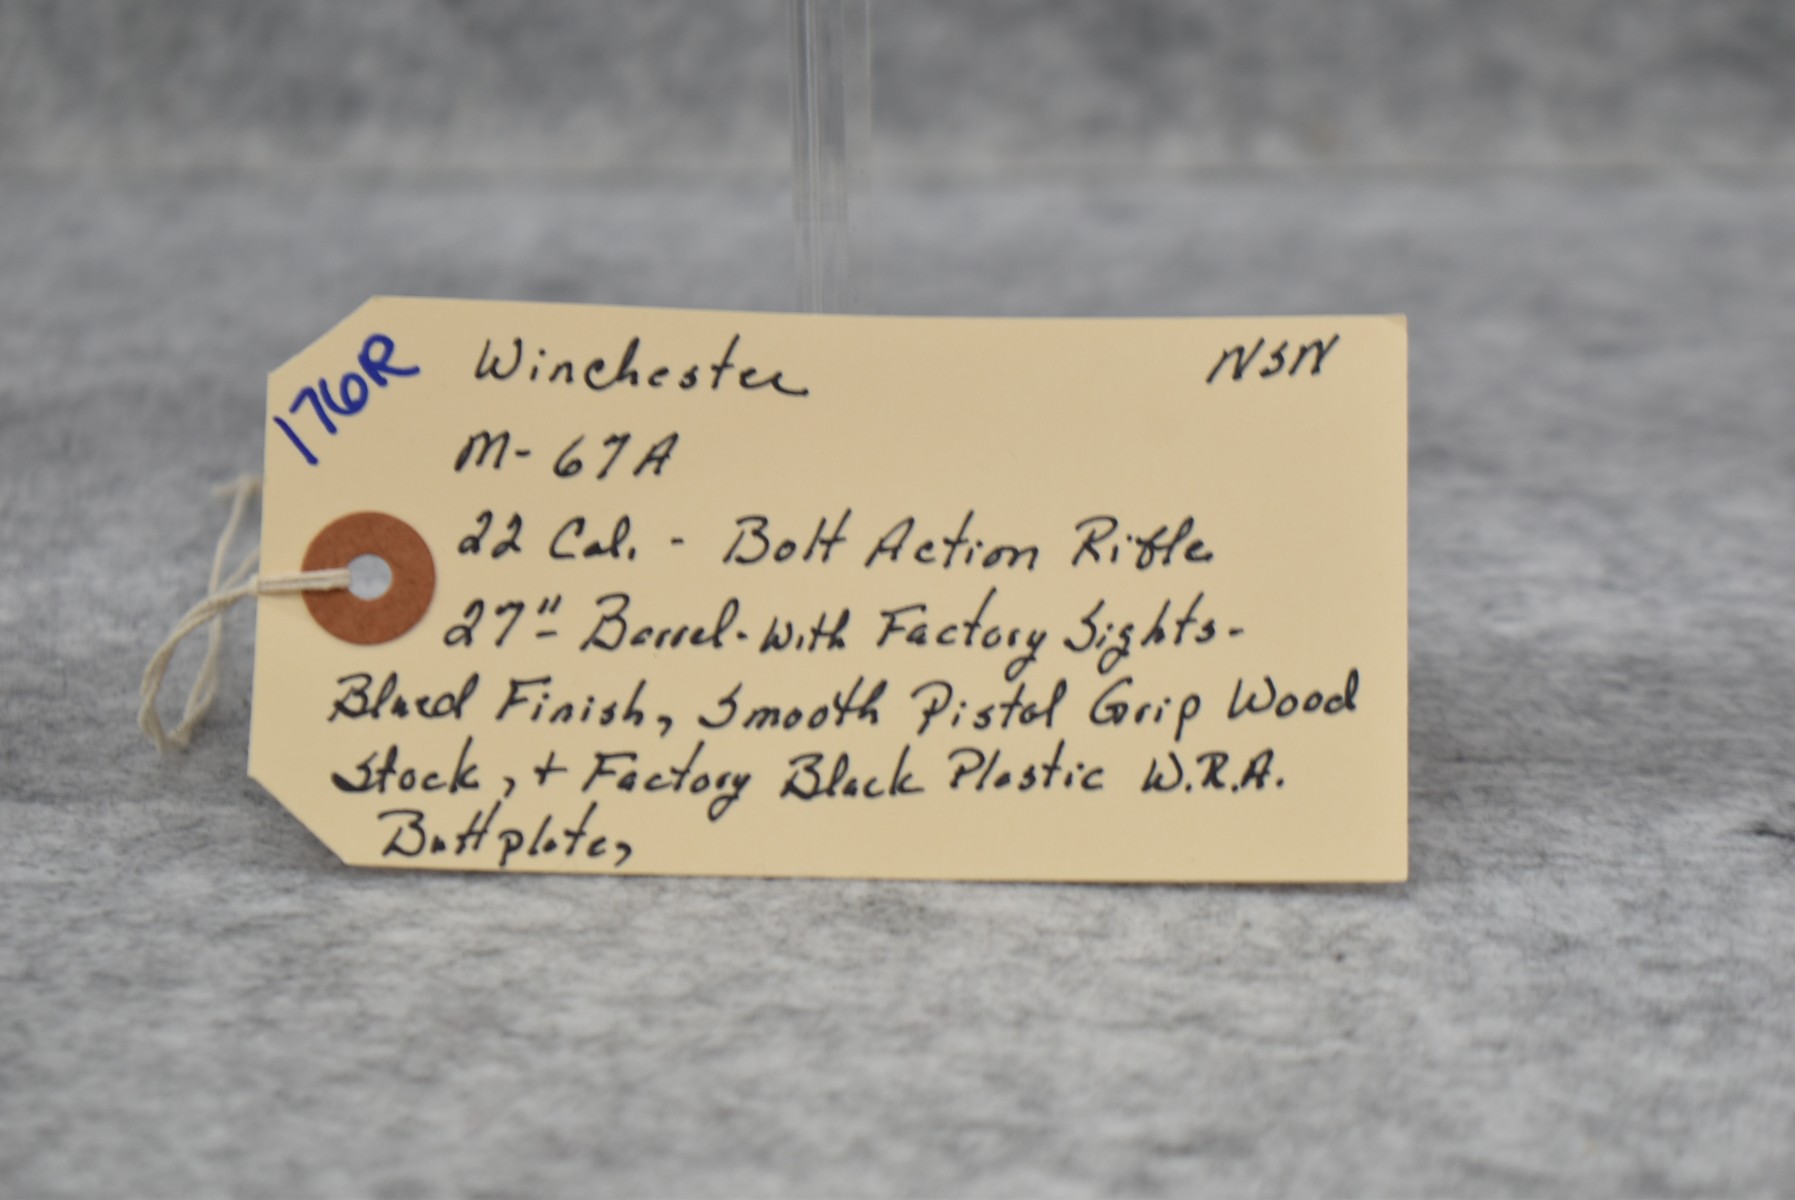 176R
Winchester NSN
M-67A
22 Cal. - Bolt Action Rifle
27" Barrel - with Factory Sights -
Blued Finish, Smooth Pistol Grip Wood
Stock, + Factory Black Plastic W.R.A.
Buttplate,